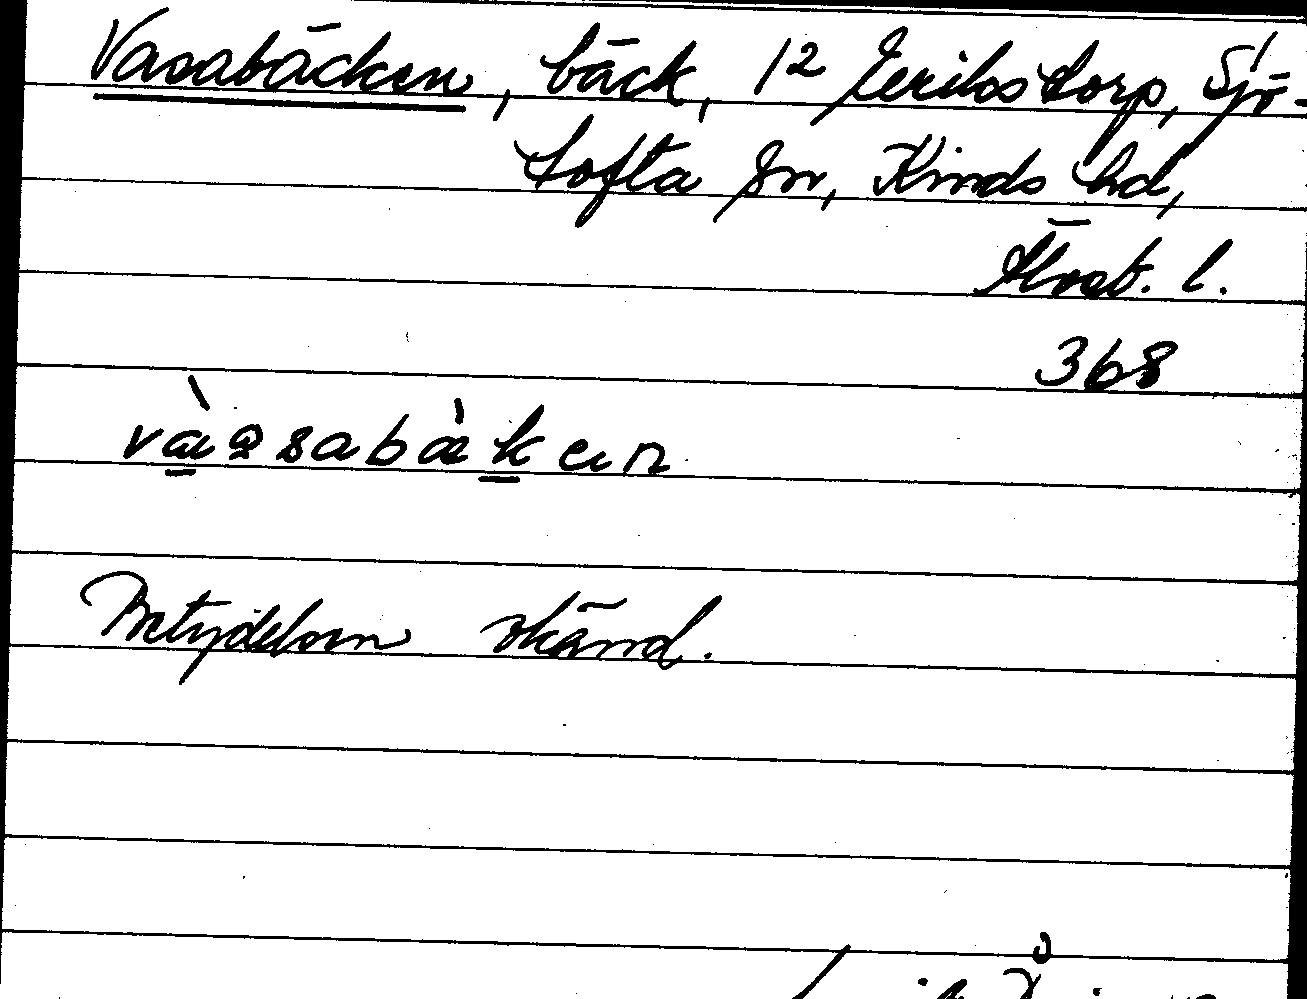 Vasabäcken, bäck, 12 Eeriks torp, Sjö-
tofta sn, Kinds hd,
Älvsb. l.
368
Betydelsen okänd.